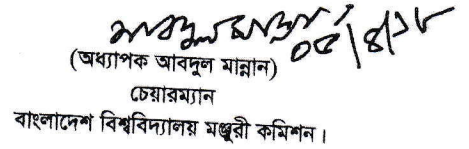 আবদুল মান্নান
০৫/৪/১৮
(অধ্যাপক আবদুল মান্নান)
চেয়ারম্যান
বাংলাদেশ বিশ্ববিদ্যালয় মঞ্জুরী কমিশন।